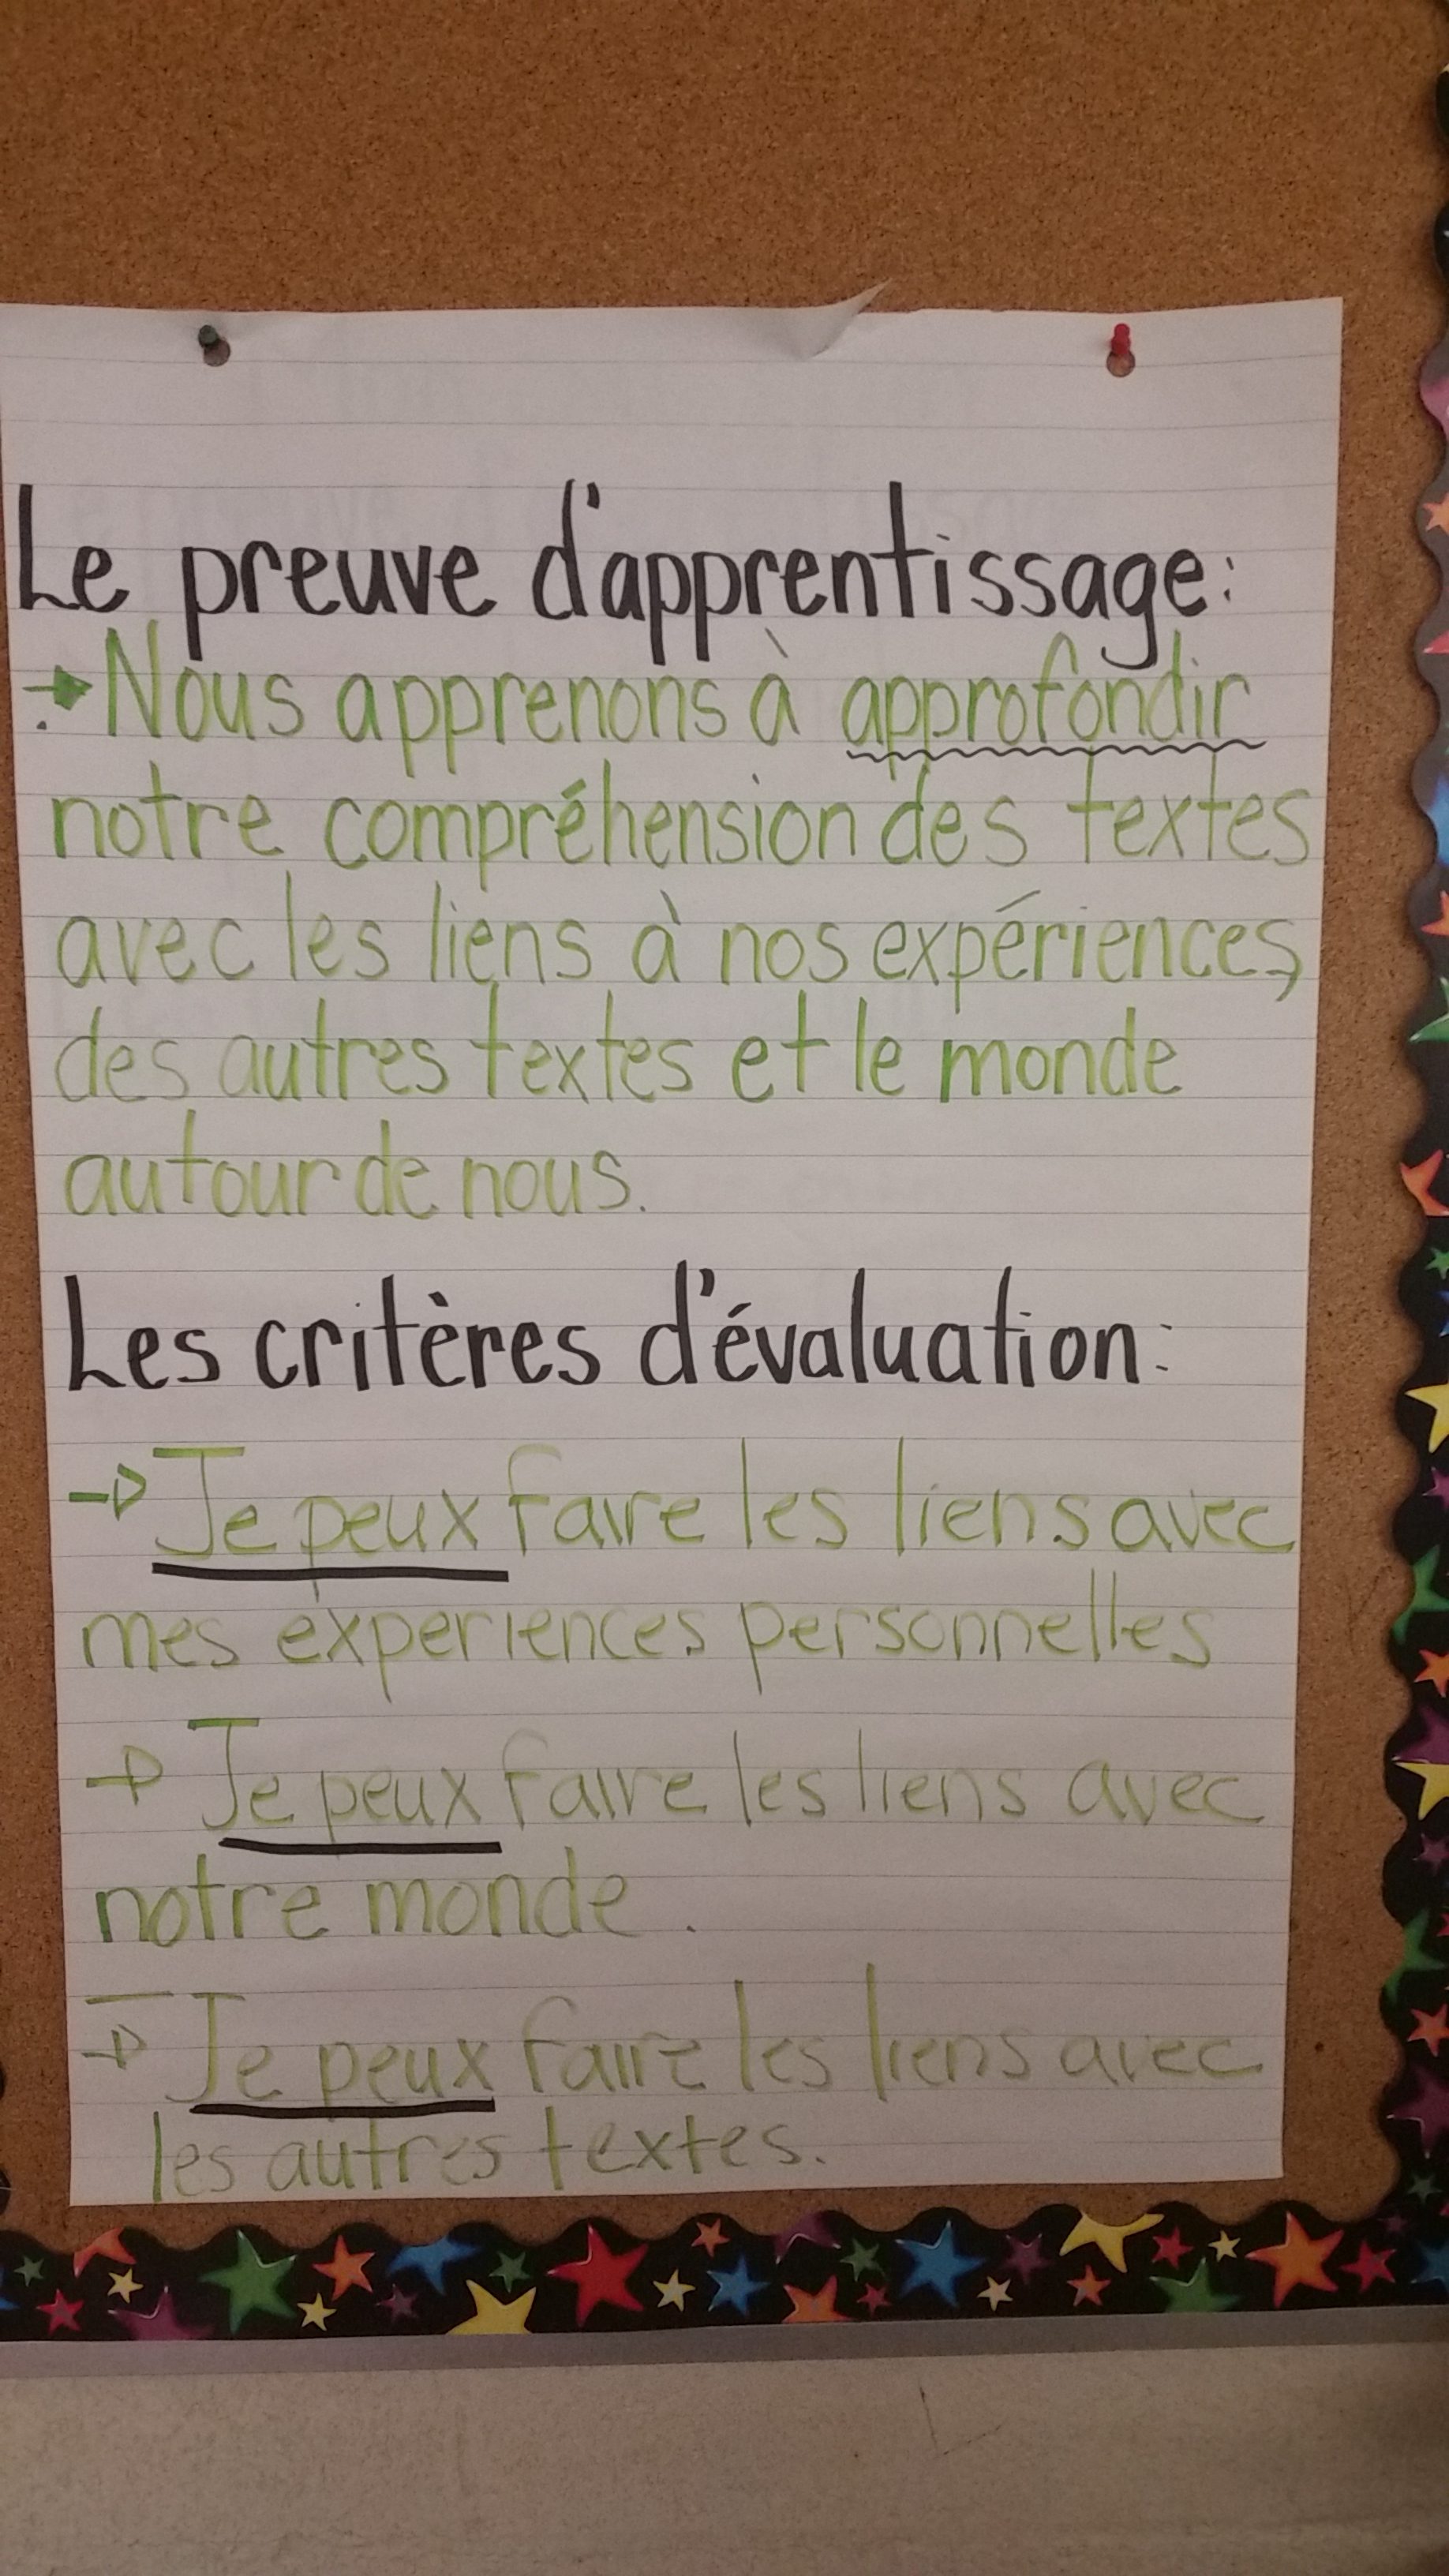 Le preuve d'apprentissage:
→ Nous apprenons à approfondir
notre compréhension des textes
avec les liens à nos expériences,
des autres textes et le monde
autour de nous.
Les critères d'évaluation:
→ Je peux faire les liens avec
mes éxperiences personnelles
→ Je peux faire les liens avec
notre monde.
→ Je peux faire les liens avec
les autres textes.